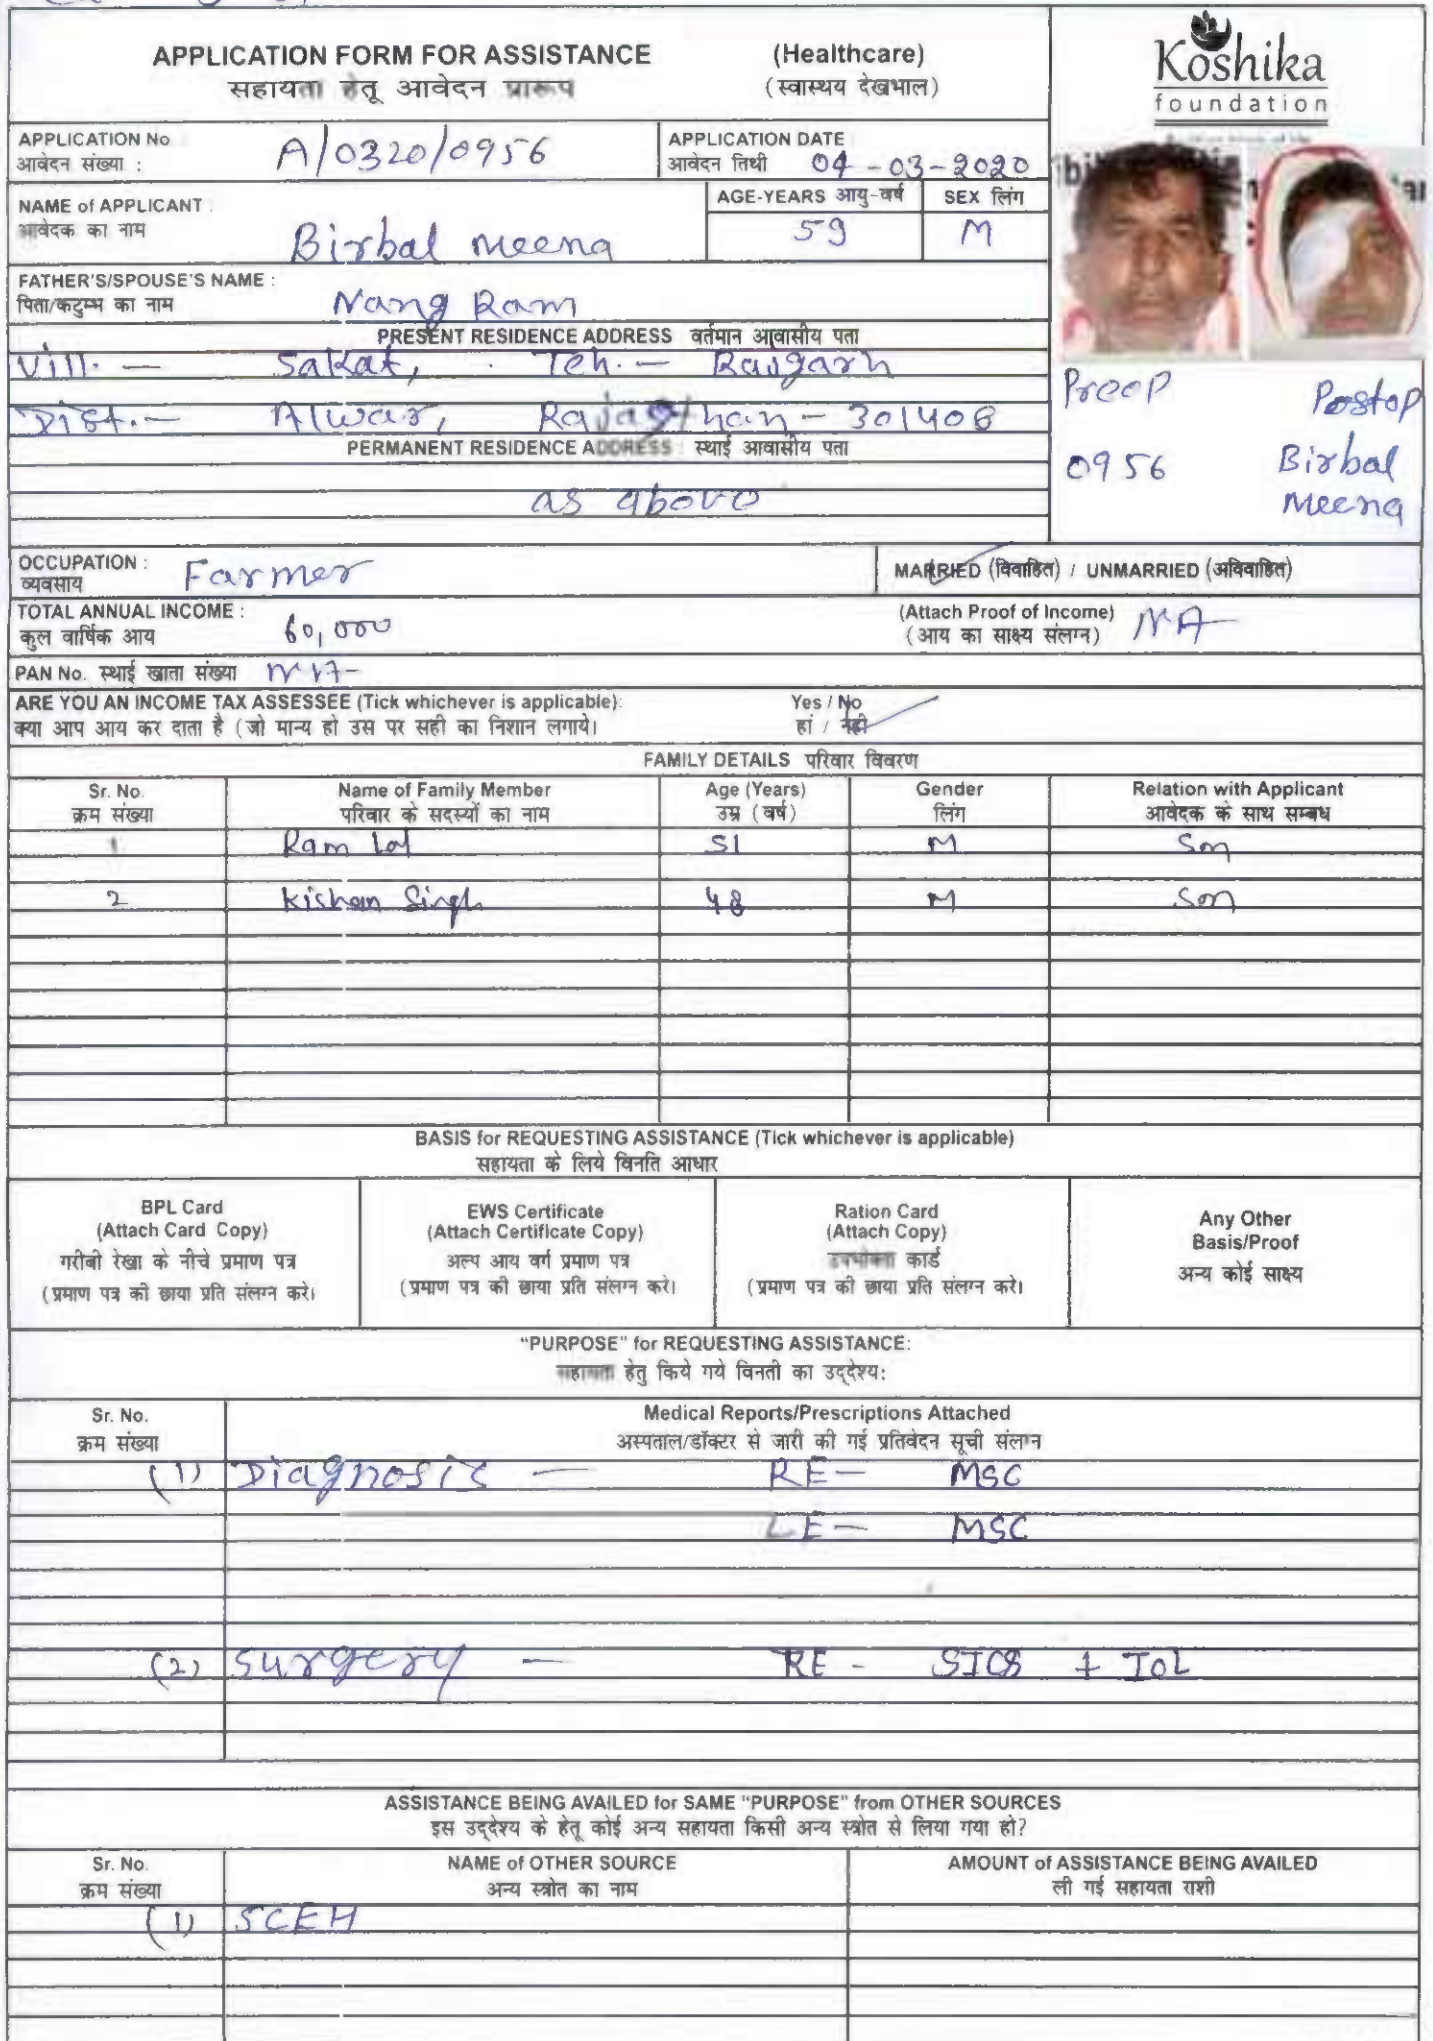 APPLICATION FORM FOR ASSISTANCE (Healthcare)
सहायता हेतू आवेदन प्रारूप (स्वास्थय देखभाल)
Koshika
foundation
APPLICATION No
आवेदन संख्या : A/0320/0956
APPLICATION DATE
आवेदन तिथी 04-03-2020
NAME of APPLICANT :
आवेदक का नाम Birbal Meena
AGE-YEARS आयु-वर्ष SEX लिंग
59 M
FATHER'S/SPOUSE'S NAME :
पिता/कटुम्भ का नाम Nang Ram
PRESENT RESIDENCE ADDRESS वर्तमान आवासीय पता
Vill. - Sakat, Teh. - Rajgarh
Dist. - Alwar, Rajasthan - 301408
PERMANENT RESIDENCE ADDRESS : स्थाई आवासीय पता
as above
Preop Postop
0956 Birbal
Meena
OCCUPATION :
व्यवसाय Farmer
MARRIED (विवाहित) / UNMARRIED (अविवाहित)
TOTAL ANNUAL INCOME :
कुल वार्षिक आय 60,000
(Attach Proof of Income)
(आय का साक्ष्य संलग्न) NA
PAN No. स्थाई खाता संख्या NA
ARE YOU AN INCOME TAX ASSESSEE (Tick whichever is applicable): Yes / No
क्या आप आय कर दाता है (जो मान्य हो उस पर सही का निशान लगाये। हां / नहीं
FAMILY DETAILS परिवार विवरण
Sr. No. Name of Family Member Age (Years) Gender Relation with Applicant
क्रम संख्या परिवार के सदस्यों का नाम उम्र (वर्ष) लिंग आवेदक के साथ सम्बध
1 Ram Lal 51 M Son
2 Kishan Singh 48 M Son
BASIS for REQUESTING ASSISTANCE (Tick whichever is applicable)
सहायता के लिये विनति आधार
BPL Card
(Attach Card Copy)
गरीबी रेखा के नीचे प्रमाण पत्र
(प्रमाण पत्र की छाया प्रति संलग्न करे।
EWS Certificate
(Attach Certificate Copy)
अल्प आय वर्ग प्रमाण पत्र
(प्रमाण पत्र की छाया प्रति संलग्न करे।
Ration Card
(Attach Copy)
उपभोक्ता कार्ड
(प्रमाण पत्र की छाया प्रति संलग्न करे।
Any Other
Basis/Proof
अन्य कोई साक्ष्य
"PURPOSE" for REQUESTING ASSISTANCE:
सहायता हेतु किये गये विनती का उद्देश्य:
Sr. No. Medical Reports/Prescriptions Attached
क्रम संख्या अस्पताल/डॉक्टर से जारी की गई प्रतिवेदन सूची संलग्न
(1) Diagnosis - RE - MSC
LE - MSC
(2) Surgery - RE - SICS + IOL
ASSISTANCE BEING AVAILED for SAME "PURPOSE" from OTHER SOURCES
इस उद्देश्य के हेतू कोई अन्य सहायता किसी अन्य स्त्रोत से लिया गया हो?
Sr. No. NAME of OTHER SOURCE AMOUNT of ASSISTANCE BEING AVAILED
क्रम संख्या अन्य स्त्रोत का नाम ली गई सहायता राशी
(1) SCEH